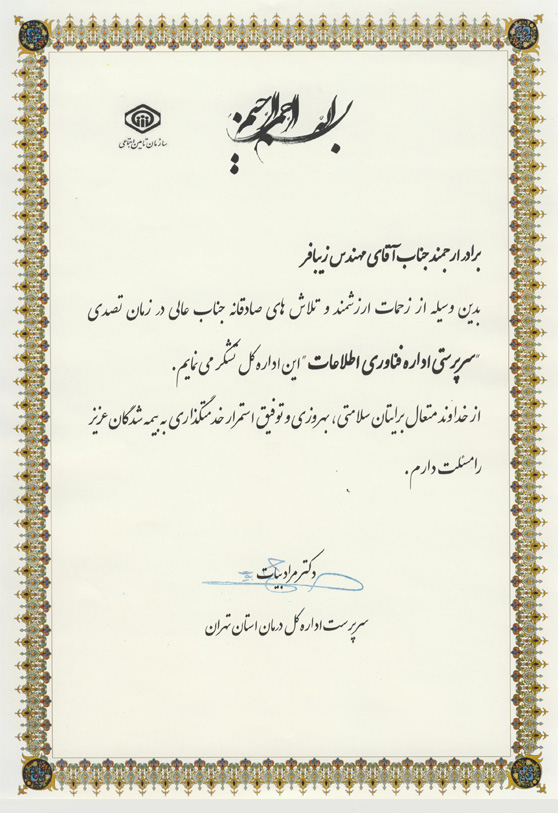 بسم الله الرحمن الرحیم
سازمان تأمین اجتماعی
برادر ارجمند جناب آقای مهندس زیبافر
بدین وسیله از زحمات ارزشمند و تلاش های صادقانه جناب عالی در زمان تصدی
"سرپرستی اداره فناوری اطلاعات" این اداره کل تشکر می نمایم.
از خداوند متعال برایتان سلامتی، بهروزی و توفیق استمرار خدمتگذاری به بیمه شدگان عزیز
را مسئلت دارم.
دکتر مراد بیات
سرپرست اداره کل درمان استان تهران